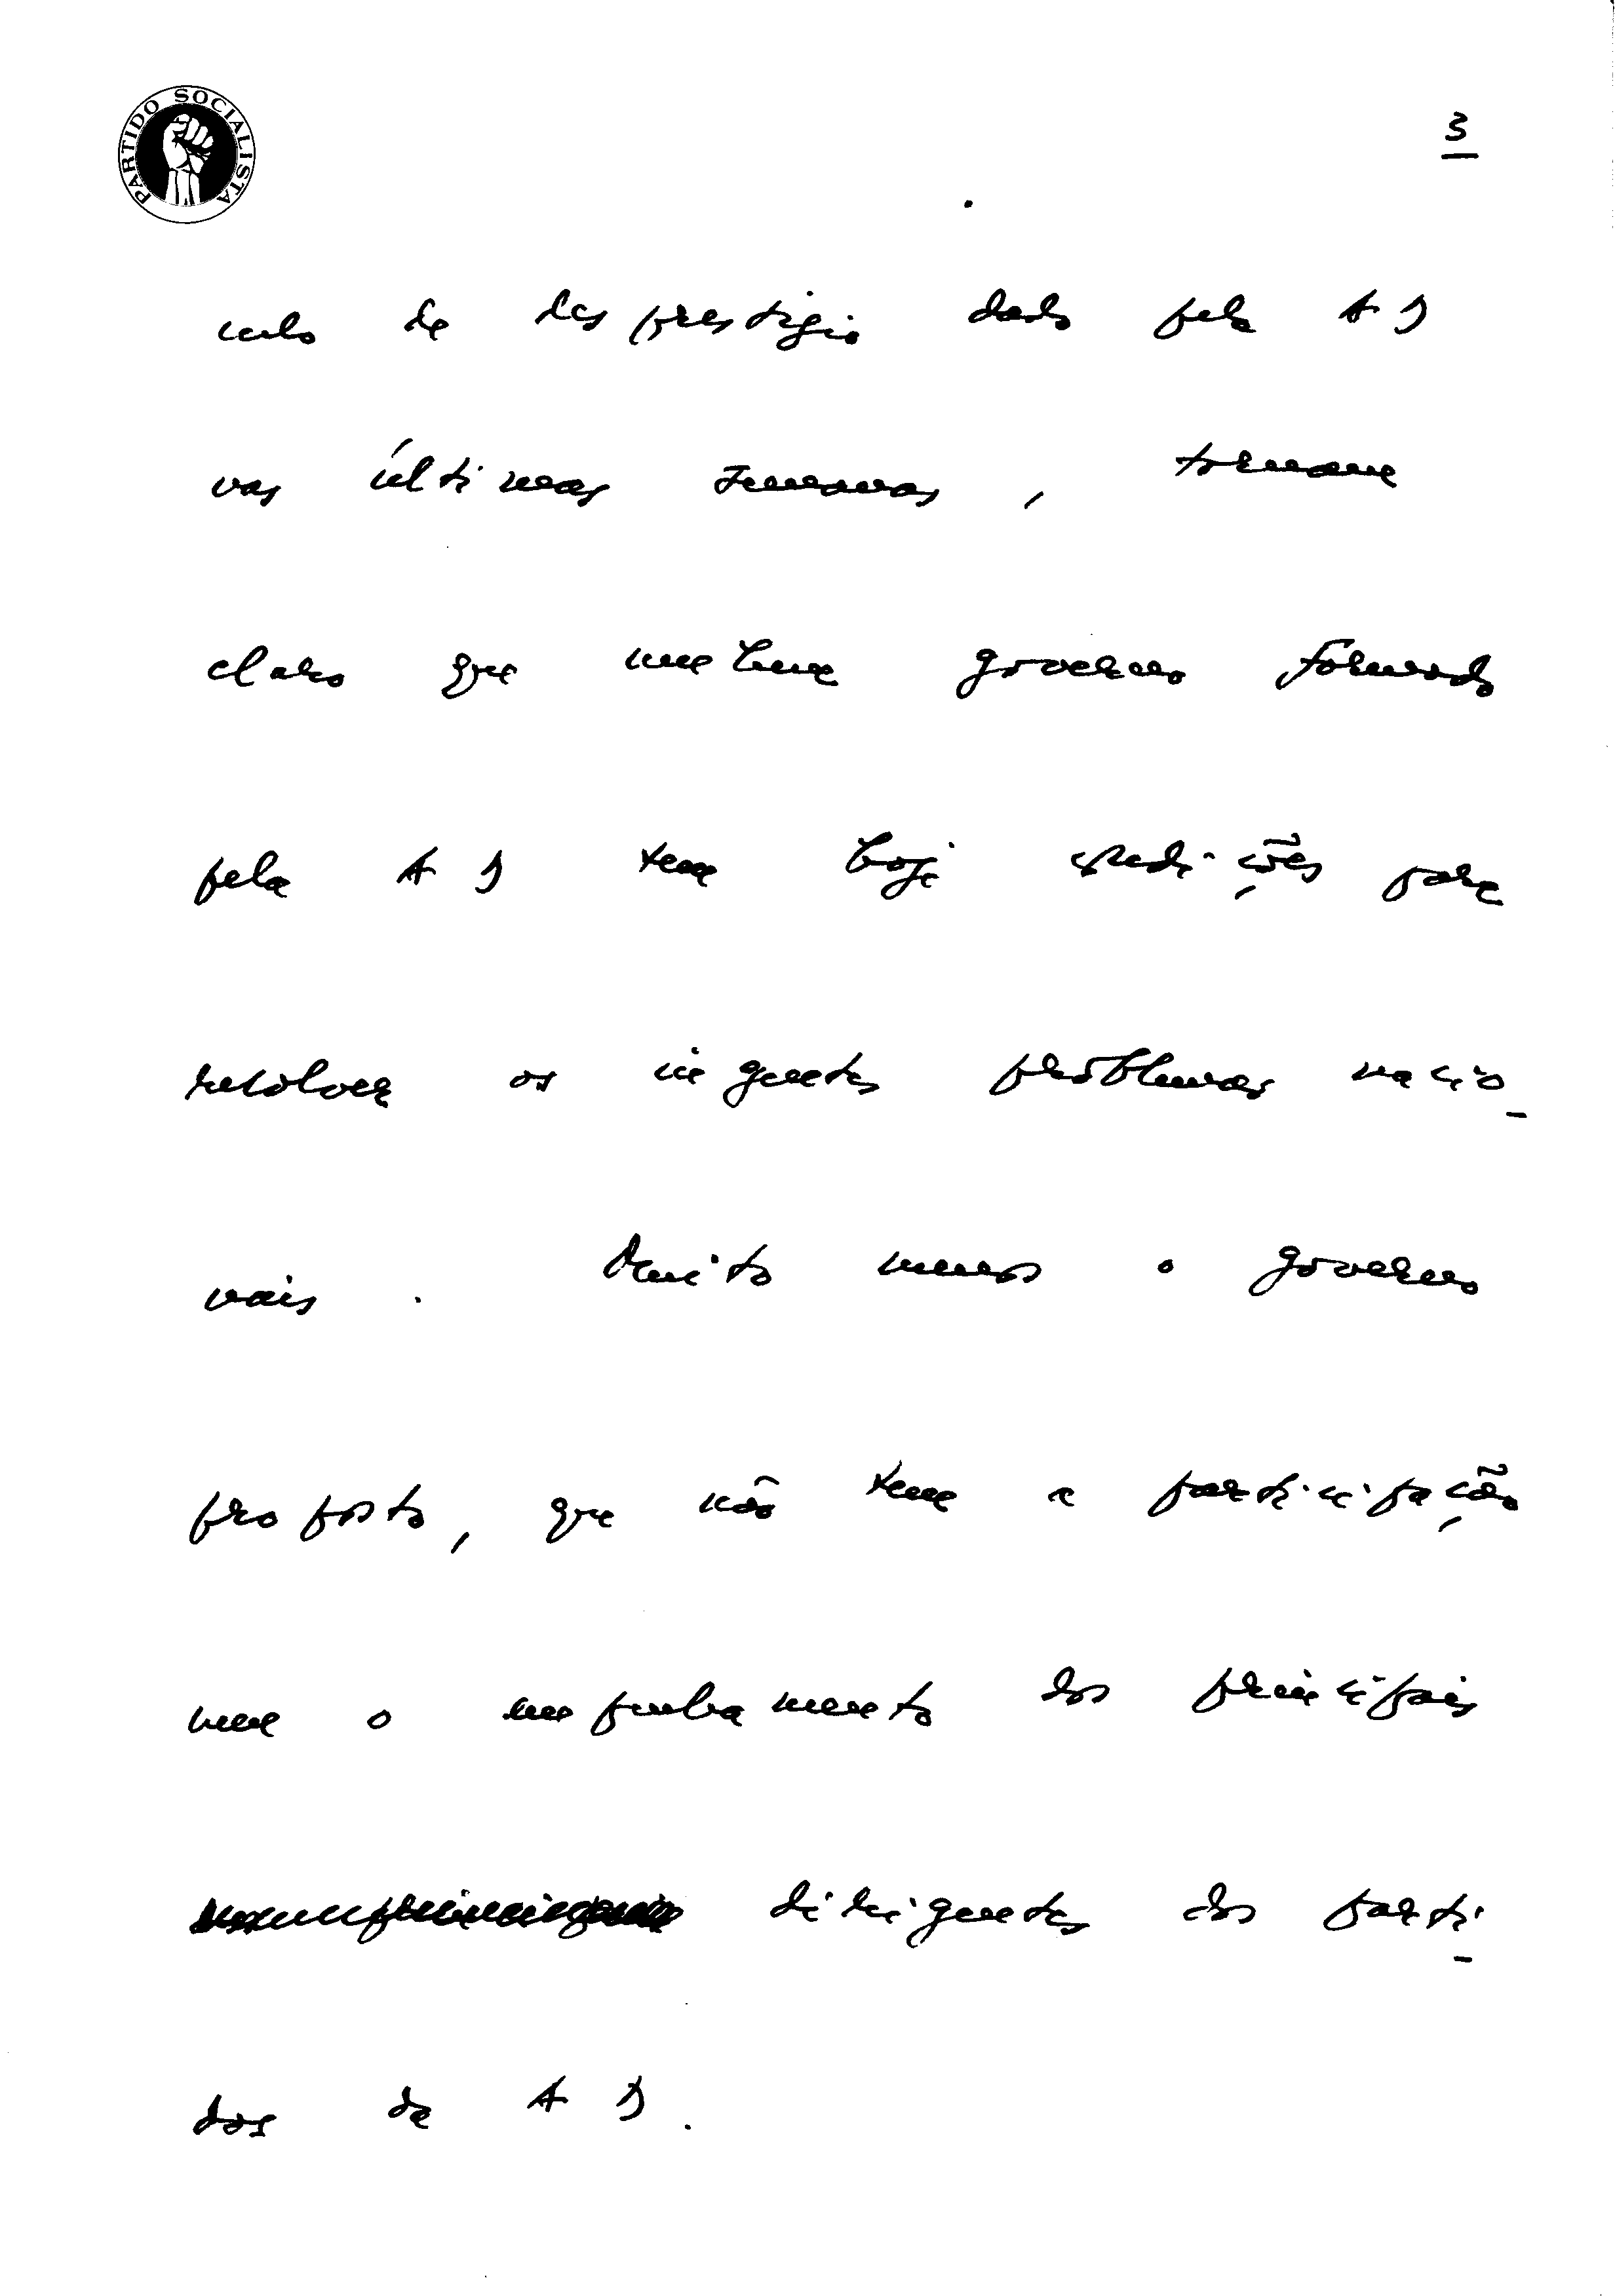 PARTIDO SOCIALISTA
3
culo de desprestígio dado pela AD
nas últimas semanas, tornam
claro que nenhum governo formado
pela AD tem hoje condições para
resolver os ingentes problemas nacio-
nais. Muito menos o governo
proposto, que não tem a participação
nem o empenhamento dos principais
dirigentes dos parti-
dos da AD.